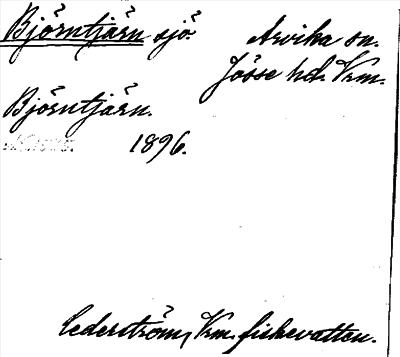 Björntjärn sjö Arvika sn.
Jösse hd. Vrm.
Björntjärn.
1896.
Cederström, Vrm. fiskevatten.